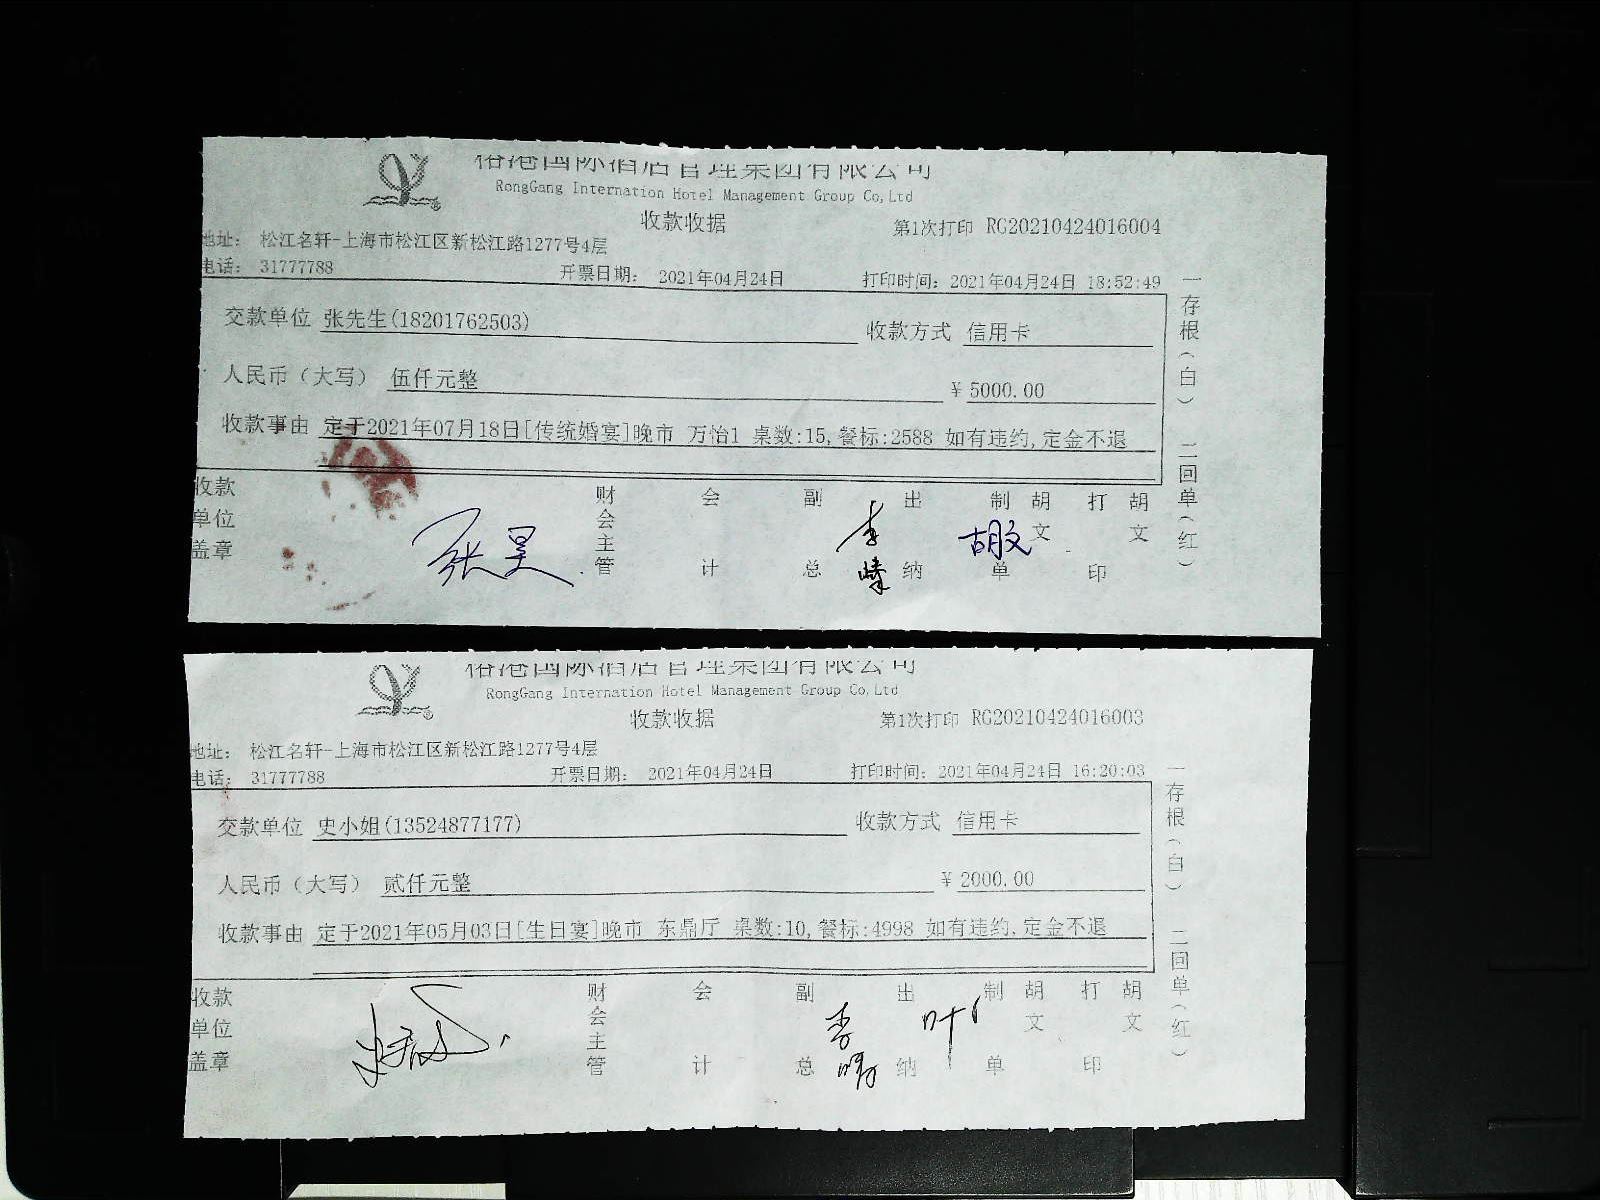 裕港国际酒店管理集团有限公司
RongGang Internation Hotel Management Group Co,Ltd
收款收据 第1次打印 RG20210424016004
地址： 松江名轩-上海市松江区新松江路1277号4层
电话： 31777788 开票日期： 2021年04月24日 打印时间：2021年04月24日 18:52:49
交款单位 张先生(18201762503) 收款方式 信用卡
人民币（大写） 伍仟元整 ￥5000.00
收款事由 定于2021年07月18日[传统婚宴]晚市 万怡1 桌数:15,餐标:2588 如有违约,定金不退
收款单位盖章 张昊 财会主管 会计 副总 李峰 出纳 胡文 制单 胡文 打印 胡文
一存根（白） 二回单（红）
裕港国际酒店管理集团有限公司
RongGang Internation Hotel Management Group Co,Ltd
收款收据 第1次打印 RG20210424016003
地址： 松江名轩-上海市松江区新松江路1277号4层
电话： 31777788 开票日期： 2021年04月24日 打印时间：2021年04月24日 16:20:03
交款单位 史小姐(13524877177) 收款方式 信用卡
人民币（大写） 贰仟元整 ￥2000.00
收款事由 定于2021年05月03日[生日宴]晚市 东鼎厅 桌数:10,餐标:4998 如有违约,定金不退
收款单位盖章 财会主管 会计 副总 出纳 制单 胡文 打印 胡文
一存根（白） 二回单（红）